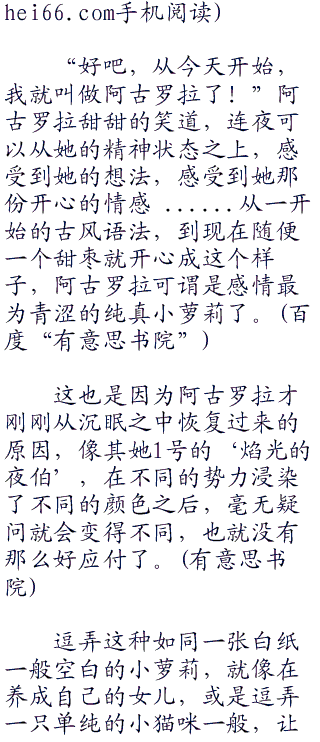 hei66.com手机阅读)
“好吧，从今天开始，
我就叫做阿古罗拉了！”阿
古罗拉甜甜的笑道，连夜可
以从她的精神状态之上，感
受到她的想法，感受到她那
份开心的情感 ......从一开
始的古风语法，到现在随便
一个甜枣就开心成这个样
子，阿古罗拉可谓是感情最
为青涩的纯真小萝莉了。(百
度“有意思书院”)
这也是因为阿古罗拉才
刚刚从沉眠之中恢复过来的
原因，像其她1号的‘焰光的
夜伯’，在不同的势力浸染
了不同的颜色之后，毫无疑
问就会变得不同，也就没有
那么好应付了。(有意思书
院)
逗弄这种如同一张白纸
一般空白的小萝莉，就像在
养成自己的女儿，或是逗弄
一只单纯的小猫咪一般，让